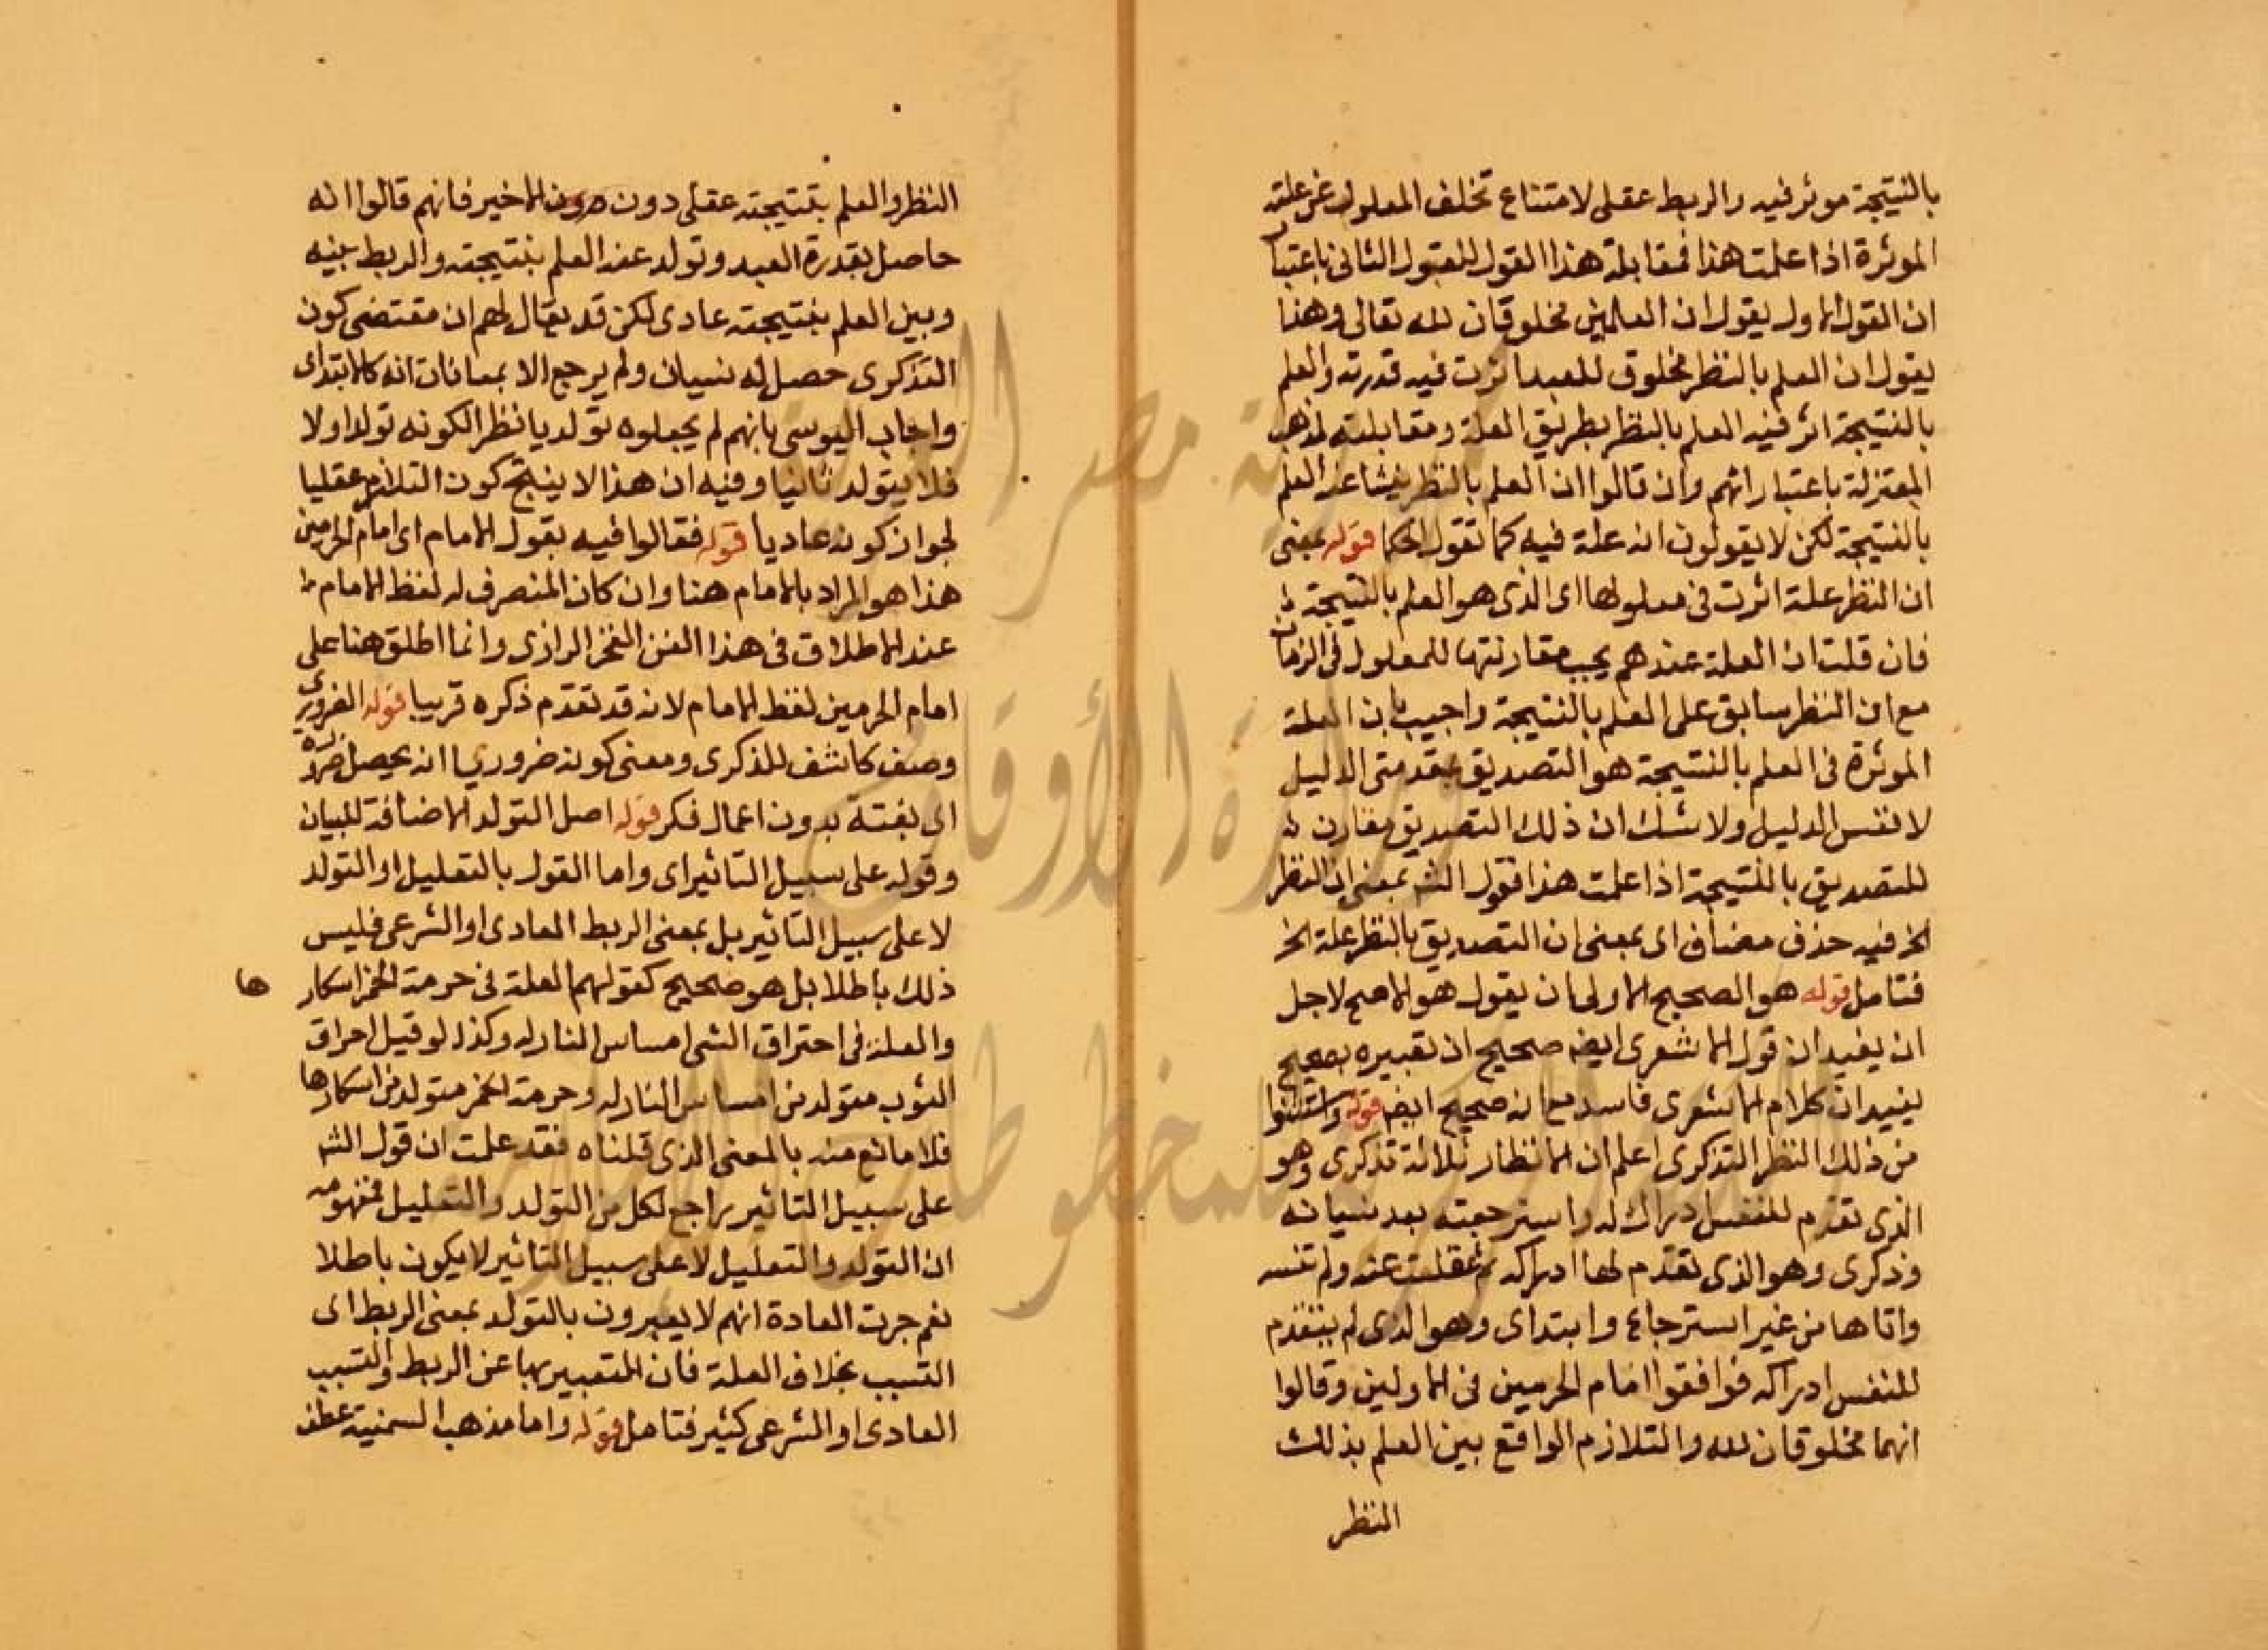 بالنتيجة موثر فيه والربط عقلى لامتناع تخلف المعلول عن علته
الموثرة اذا علمت هذا فمقابلة هذا القول للقول الثانى باعتبار
ان القول الاول يقول ان العلمين مخلوقان لله تعالى وهذا
يقول ان العلم بالنظر مخلوق للعبد اثرت فيه قدرته والعلم
بالنتيجة اثر فيه العلم بالنظر بطريق العلة ومقابلته لمذهب
المعتزلة باعتبار انهم وان قالوا ان العلم بالنظر ينشا عنه العلم
بالنتيجة لكن لا يقولون انه علة فيه كما تقول الحكما قوله بمعنى
ان النظر علة اثرت فى معلولها اى الذى هو العلم بالنتيجة
فان قلت ان العلة عندهم يجب مقارنتها للمعلول فى الزمان
مع ان النظر سابق على العلم بالنتيجة واجيب بان العلة
الموثرة فى العلم بالنتيجة هو التصديق بمقدمتى الدليل
لا نفس الدليل ولا شك ان ذلك التصديق مقارن
للتصديق بالنتيجة اذا علمت هذا فقول الشم بمعنى ان النظر
الخ فيه حذف مضاف اى بمعنى ان التصديق بالنظر علة الخ
فتامل قوله هو الصحيح الاولى ان يقول هو الاصح لاجل
ان يفيد ان قول الاشعرى ايضا صحيح اذ تعبيره بصحيح
يفيد ان كلام الاشعرى فاسد مع انه صحيح ايضا قوله واستثنوا
من ذلك النظر التذكرى اعلم ان الانظار ثلاثة تذكرى وهو
الذى تقدم للنفس ادراك له واسترجعته بعد نسيانه
وذكرى وهو الذى تقدم لها ادراكه ثم غفلت عنه ولم تنسه
واتاها من غير استرجاع وابتداى وهو الذى لم يتقدم
للنفس ادراكه فوافقوا امام الحرمين فى الاولين وقالوا
انهما مخلوقان لله والتلازم الواقع بين العلم بذلك
النظر
النظر والعلم بنتيجته عقلى دون الاخير فانهم قالوا انه
حاصل بقدرة العبد وتولد عنه العلم بنتيجته والربط بينه
وبين العلم بنتيجته عادى لكن قد يقال لهم ان مقتضى كون
التذكرى حصل له نسيان ولم يرجع الا بمعاناة انه كالابتداى
واجاب اليوسى بانهم لم يجعلوه توليديا نظرا لكونه تولد اولا
فلا يتولد ثانيا وفيه ان هذا لا ينتج كون التلازم عقليا
لجواز كونه عاديا قوله فقالوا فيه بقول الامام اى امام الحرمين
هذا هو المراد بالامام هنا وان كان المنصرف له لفظ الامام
عند الاطلاق فى هذا الفن الفخر الرازى وانما اطلق هنا على
امام الحرمين لفظ الامام لانه قد تقدم ذكره قريبا قوله الضرورى
وصف كاشف للذكرى ومعنى كونه ضروريا انه يحصل ضرورة
اى بغتة بدون اعمال فكر قوله اصل التولد الاضافة للبيان
وقوله على سبيل التاثير اى واما القول بالتعليل او التولد
لا على سبيل التاثير بل بمعنى الربط العادى او الشرعى فليس
ذلك باطلا بل هو صحيح كقولهم العلة فى حرمة الخمر اسكارها
والعلة فى احتراق الشى امساس النار له وكذا لو قيل احراق
الثوب متولد من امساس النار له وحرمة الخمر متولد من اسكارها
فلا مانع منه بالمعنى الذى قلناه فقد علمت ان قول الشم
على سبيل التاثير راجع لكل من التولد والتعليل فمفهومه
ان التولد والتعليل لا على سبيل التاثير لا يكون باطلا
نعم جرت العادة انهم لا يعبرون بالتولد بمعنى الربط اى
التسبب بخلاف العلة فان التعبير بها عن الربط والتسبب
العادى او الشرعى كثير فتامل قوله واما مذهب السمنية عطف